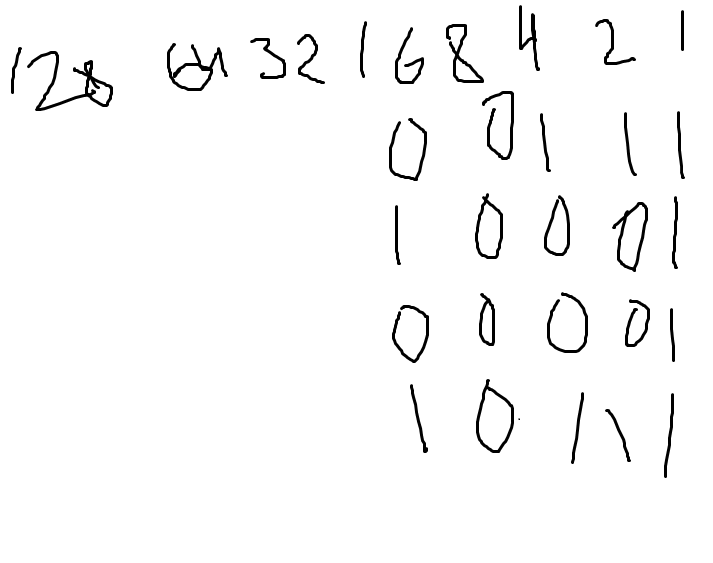 128 64 32 16 8 4 2 1
0 0 1 1 1
1 0 0 0 1
0 0 0 0 1
1 0 1 1 1